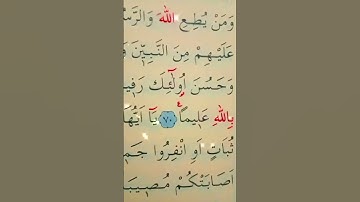 وَمَنْ يُطِعِ اللّٰهَ وَالرَّسُ
عَلَيْهِمْ مِنَ النَّبِيّ۪نَ
وَحَسُنَ اُو۬لٰٓئِكَ رَف۪ي
بِاللّٰهِ عَل۪يماً ﴿٧٠﴾ يَٓا اَيُّهَا
ثُبَاتٍ اَوِ انْفِرُوا جَم۪
اَصَابَتْكُمْ مُص۪يبَةٌ